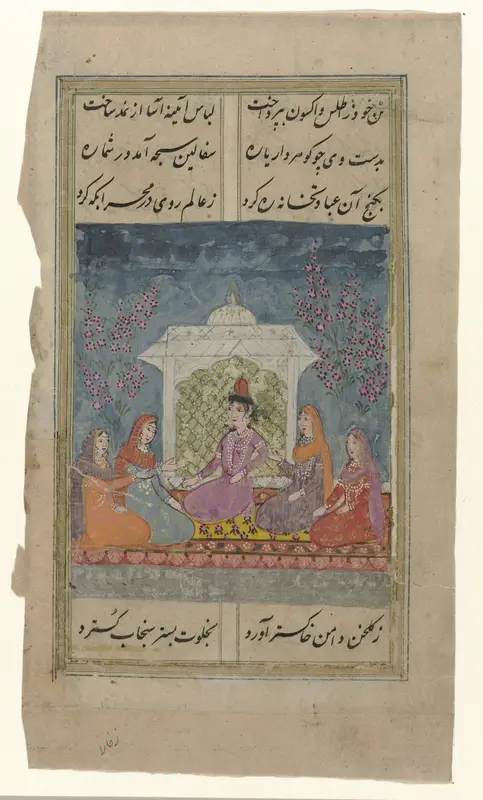 تن خود ز اطلس و اکسون بپرداخت لباس آینه آسا از نمد ساخت
بدست وی چو گوهردار یاره سفالین سبحه آمد در شماره
بکنج آن عبادتخانه ره کرد ز عالم روی در محرابگه کرد
ز گلخن دامن خاکستر آورد بخلوت بستر سنجاب گسترد